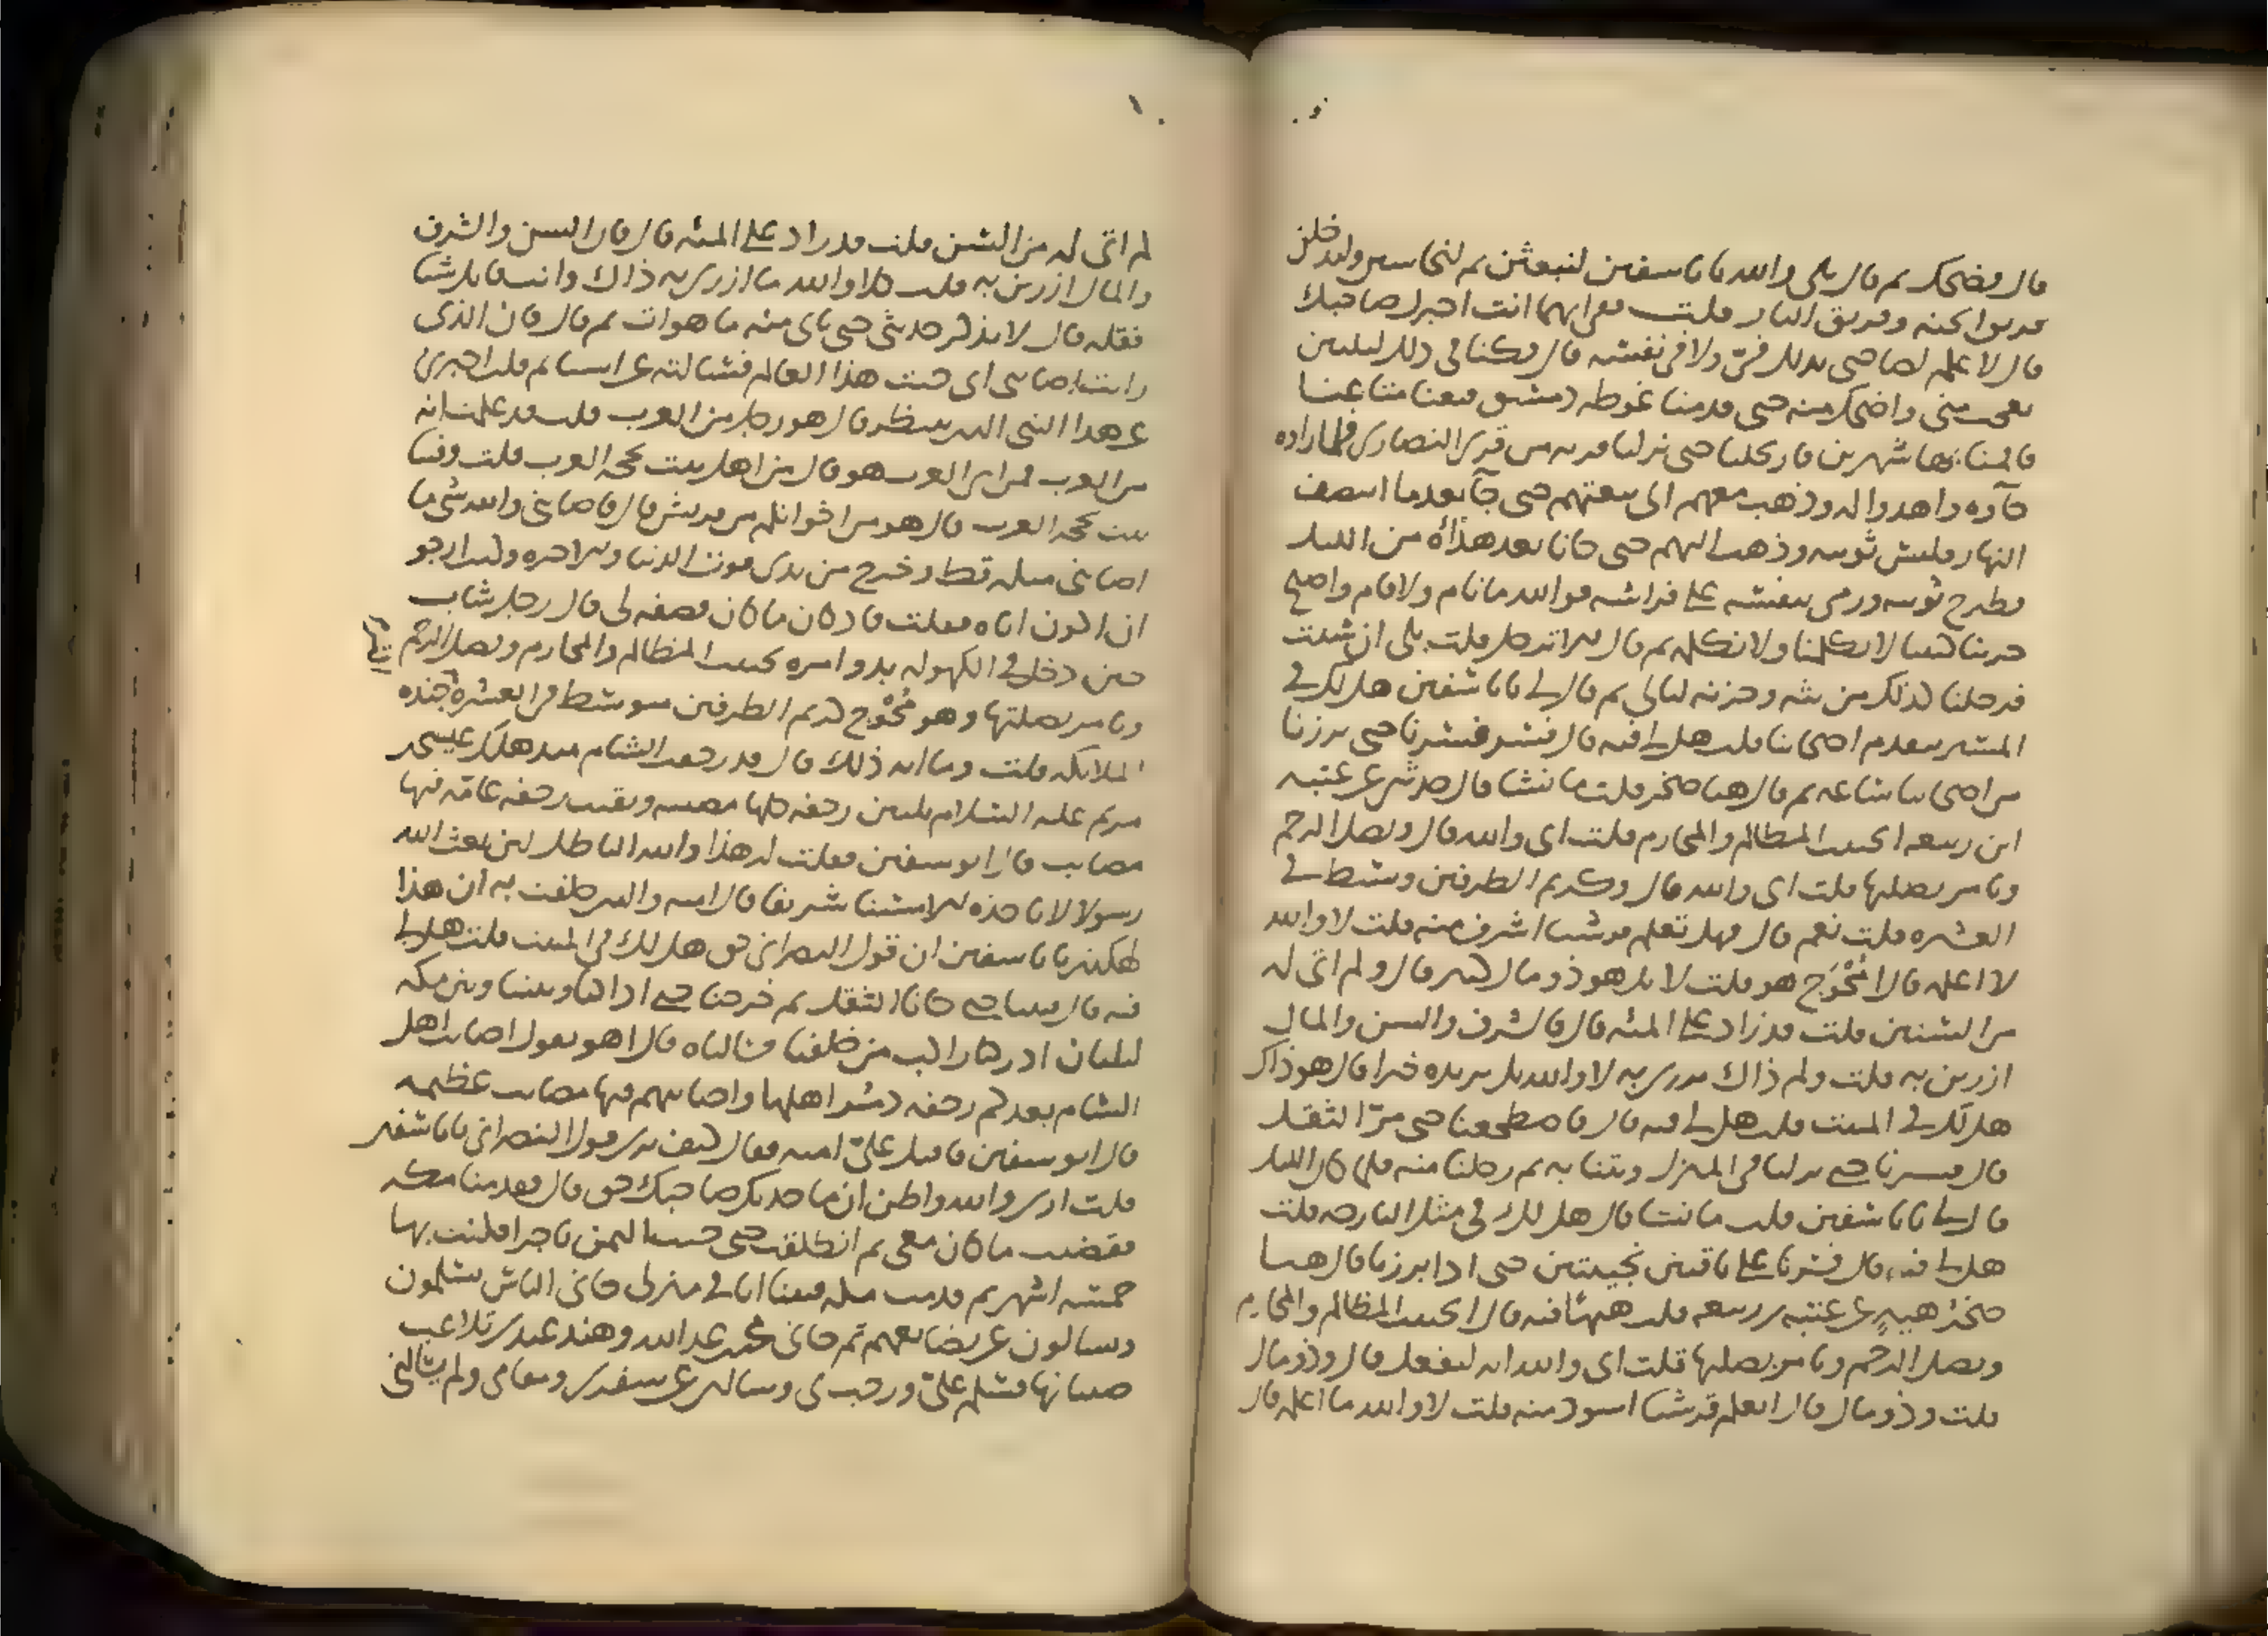 قال فضحك ثم قال بلى والله يا با سفين لنبعثن ثم لنحاسبن وليدخلن
فريق الجنة وفريق النار قلت ففي ايهما انت اخبرك صاحبك
قال لا علم لصاحبي بذلك في ولا في نفسه قال فكنا في ذلك ليلتين
يعجب مني واضحك منه حتى قدمنا غوطه دمشق فبعنا متاعنا
فاقمنا بها شهرين فارتحلنا حتى نزلنا قريه من قرى النصارى فلما راوه
جآوه واهدوا له وذهب معهم الى بيعتهم حتى جآ بعدما انتصف
النهار فلبس ثوبيه وذهب اليهم حتى جانا بعد هدأة من الليل
فطرح ثوبيه ورمى بنفسه على فراشه فوالله ما نام ولا قام واصبح
حزينا كئيبا لا يكلمنا ولا نكلمه ثم قال الا ترحل قلت بلى ان شئت
فرحلنا كذلك من بثه وحزنه ليالي ثم قال لي يابا سفين هل لك في
المسير نتقدم اصحابنا قلت هل لي فيه قال فسر فسرنا حتى برزنا
من اصحابنا ساعه ثم قال هيا صخر قلت ما تشا قال حدثني عن عتبه
ابن ربيعه ايجتنب المظالم والمحارم قلت اي والله قال ويصل الرحم
ويامر بصلتها قلت اي والله قال وكريم الطرفين وسط في
العشيره قلت نعم قال فهل تعلم قرشيا اشرف منه قلت لا والله
لا اعلم قال امحوج هو قلت لا بل هو ذو مال كثير قال وكم اتى له
من السنين قلت قد زاد على المئه قال فالشرف والسن والمال
ازرين به قلت ولم ذاك يزري به لا والله بل يزيده خيرا قال هو ذاك
هل لك في المبيت قلت هل لي فيه قال فاضطجعنا حتى مر الثقل
قال فسرنا حتى نزلنا في المنزل وبتنا به ثم رحلنا منه فلما كان الليل
قال لي يابا سفين قلت ما تشا قال هل لك في مثل البارحه قلت
هل لي فيه قال فسرنا على ناقتين نجيبتين حتى اذا برزنا قال هيا
صخر هيه عن عتبه بن ربيعه قلت هيها فيه قال ايجتنب المظالم والمحارم
ويصل الرحم ويامر بصلتها قلت اي والله انه ليفعل قال وذو مال
قلت وذو مال قال اتعلم قرشيا اسود منه قلت لا والله ما اعلم قال
كم اتى له من السن قلت قد زاد على المئه قال فان السن والشرف
والمال ازرين به قلت كلا والله ما ازرى به ذاك وانت قايل شيا
فقله قال لا تذكر حديثي حتى ياتي منه ما هو ات ثم قال فان الذي
رايت اصابني اني جئت هذا العالم فسالته عن اشيا ثم قلت اخبرني
عن هذا النبي الذي ينتظر قال هو رجل من العرب قلت قد علمت انه
من العرب فمن اي العرب هو قال من اهل بيت تحجه العرب قلت وفينا
بيت تحجه العرب قال هو من اخوانكم من قريش قال فاصابني والله شي ما
اصابني مثله قط وخرج من يدي فوز الدنيا والاخره وكنت ارجو
ان اكون اياه فقلت فاذ كان ما كان فصفه لي قال رجل شاب
حين دخل في الكهوله بدو امره يجتنب المظالم والمحارم ويصل الرحم
ويامر بصلتها وهو محوج كريم الطرفين متوسط في العشيره اكثر جنده
الملايكه قلت وما ايه ذلك قال قد رجفت الشام منذ هلك عيسى بن
مريم عليه السلام ثلثين رجفه كلها مصيبه وبقيت رجفه عامه فيها
مصايب قال ابو سفين فقلت له هذا والله الباطل لئن بعث الله
رسولا لا ياخذه الا مسنا شريفا قال اميه والذي حلفت به ان هذا
لهكذا يابا سفين ان قول النصراني حق هل لك في المبيت قلت هل لي
فيه قال فبتنا حتى جانا الثقل ثم خرجنا حتى اذا كنا وبيننا وبين مكه
ليلتان ادركنا راكب من خلفنا فسالناه قال اهو يقول اصاب اهل
الشام بعدكم رجفه دمر اهلها واصابهم فيها مصايب عظيمه
قال ابو سفين فاقبل علي اميه فقال كيف ترى قول النصراني يابا سفين
قلت ارى والله واظن ان ما حدثك صاحبك حق قال فقدمنا مكه
فقضيت ما كان معي ثم انطلقت حتى جئت اليمن تاجرا فلبثت بها
خمسه اشهر ثم قدمت مكه فبينا انا في منزلي جاني الناس يسلمون
ويسالون عن بضايعهم ثم جاني محمد بن عبد الله وهند عندي تلاعب
صبيانها فسلم علي ورحب بي وسالني عن سفري ومقامي ولم يسالني